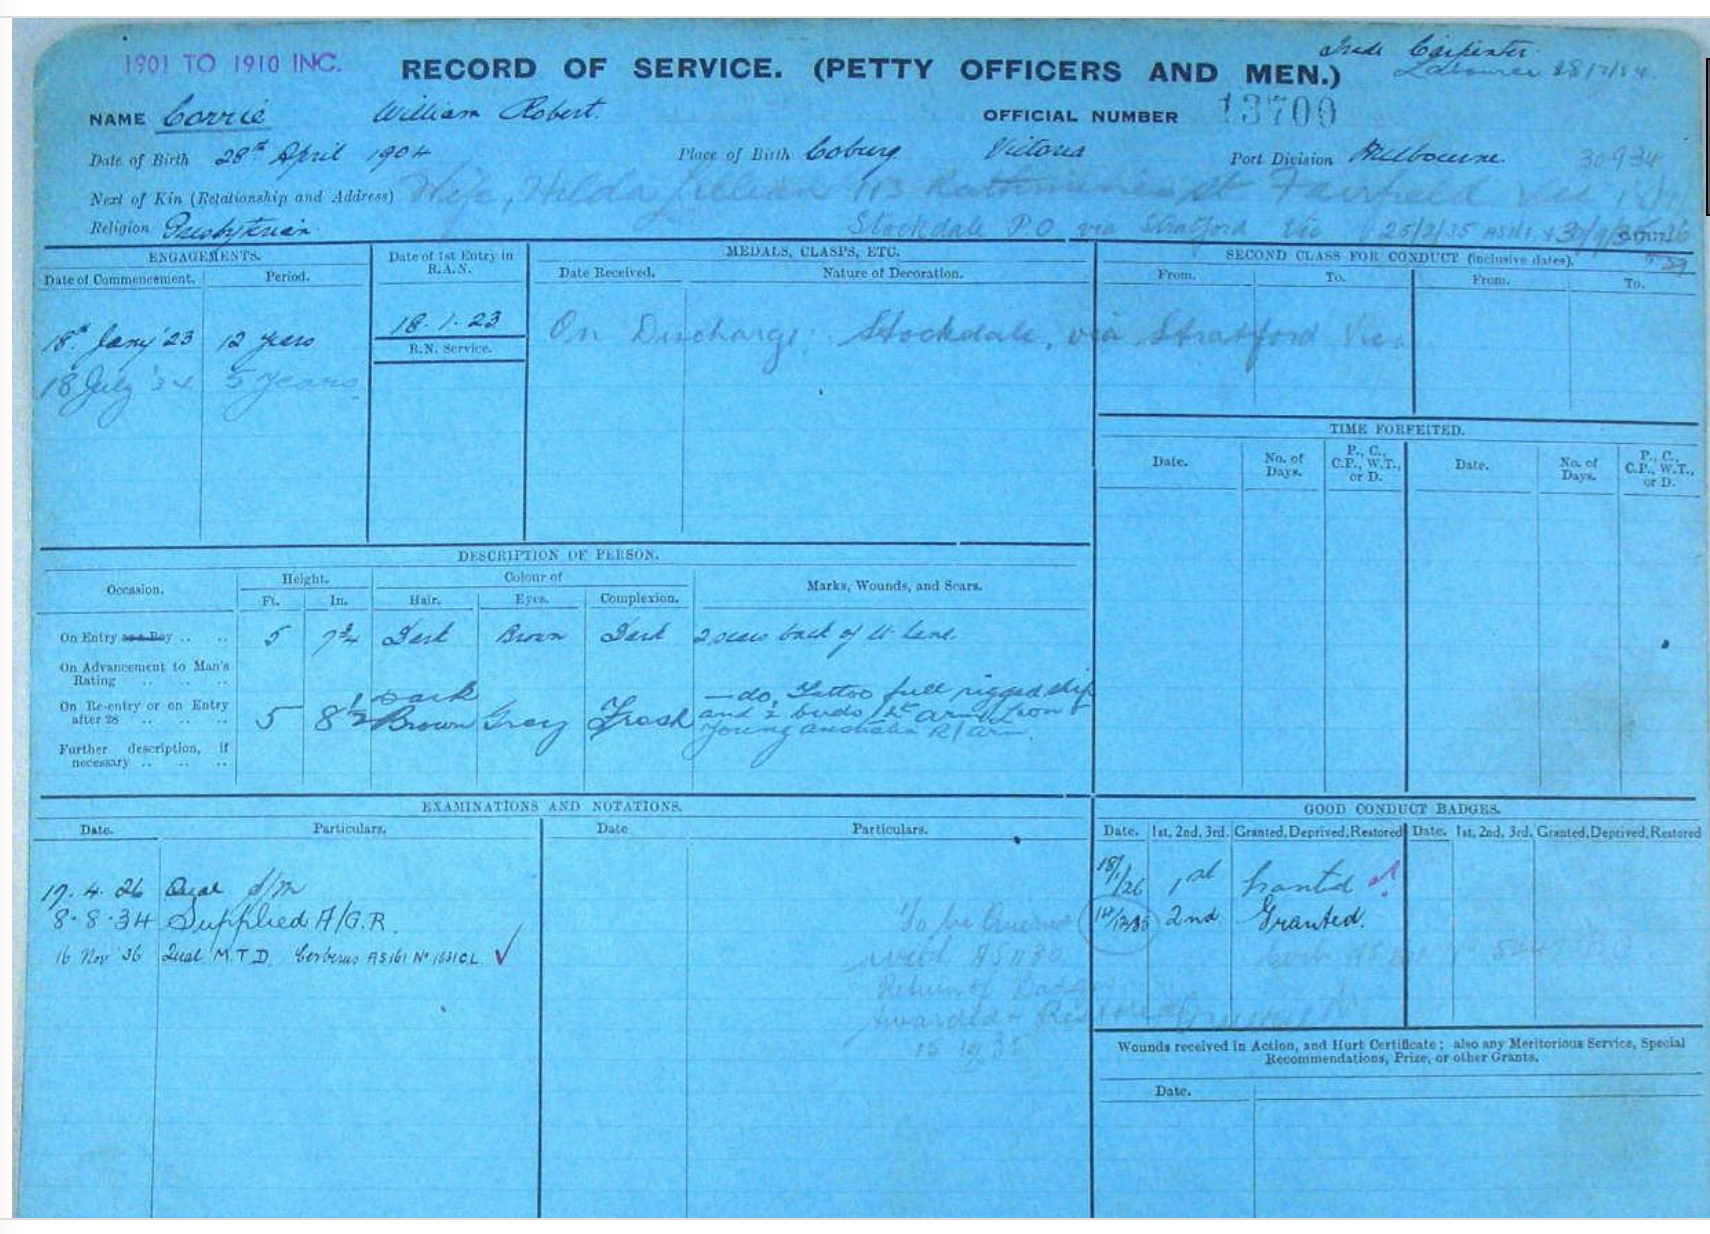 1901 TO 1910 INC.
Trade Carpenter
Labourer
RECORD OF SERVICE. (PETTY OFFICERS AND MEN.)
NAME Corrie William Robert. OFFICIAL NUMBER 13700
Date of Birth 28th April 1904 Place of Birth Coburg Victoria Port Division Melbourne. 30 9 34
Next of Kin (Relationship and Address) Wife, Hilda Lillian St Fairfield Vic
Religion Presbyterian Stockdale P.O via Stratford Vic 25/2/35
ENGAGEMENTS.
Date of Commencement. Period.
18th Jany '23 12 years
18 July '34 5 years
Date of 1st Entry in R.A.N.
18.1.23
R.N. Service.
MEDALS, CLASPS, ETC.
Date Received. Nature of Decoration.
On Discharge: Stockdale, via Stratford Vic.
SECOND CLASS FOR CONDUCT (inclusive dates).
From. To. From. To.
TIME FORFEITED.
Date. No. of Days. P., C., C.P., W.T., or D. Date. No. of Days. P., C., C.P., W.T., or D.
DESCRIPTION OF PERSON.
Occasion. Height. Colour of Marks, Wounds, and Scars.
Ft. In. Hair. Eyes. Complexion.
On Entry as a Boy .. .. 5 7¾ Dark Brown Dark 2 scars back of lt hand.
On Advancement to Man's
Rating .. .. ..
On Re-entry or on Entry
after 28 .. .. .. 5 8½ Dark Brown Grey Fresh —do, Tattoo full rigged ship
and 2 birds Lt arm, Lion &
Young Australia R/arm.
Further description, if
necessary .. .. ..
EXAMINATIONS AND NOTATIONS.
Date. Particulars. Date Particulars.
17.4.26 Qual
8.8.34 Supplied A/G.R.
16 Nov '36 Qual. M.T.D. Cerberus AS161 No 1631CL
To be
with AS 1130
Return of Badges
Awarded & Restored
GOOD CONDUCT BADGES.
Date. 1st, 2nd, 3rd. Granted, Deprived, Restored Date. 1st, 2nd, 3rd. Granted, Deprived, Restored
18/1/26 1st Granted
2nd Granted.
Wounds received in Action, and Hurt Certificate; also any Meritorious Service, Special
Recommendations, Prize, or other Grants.
Date.